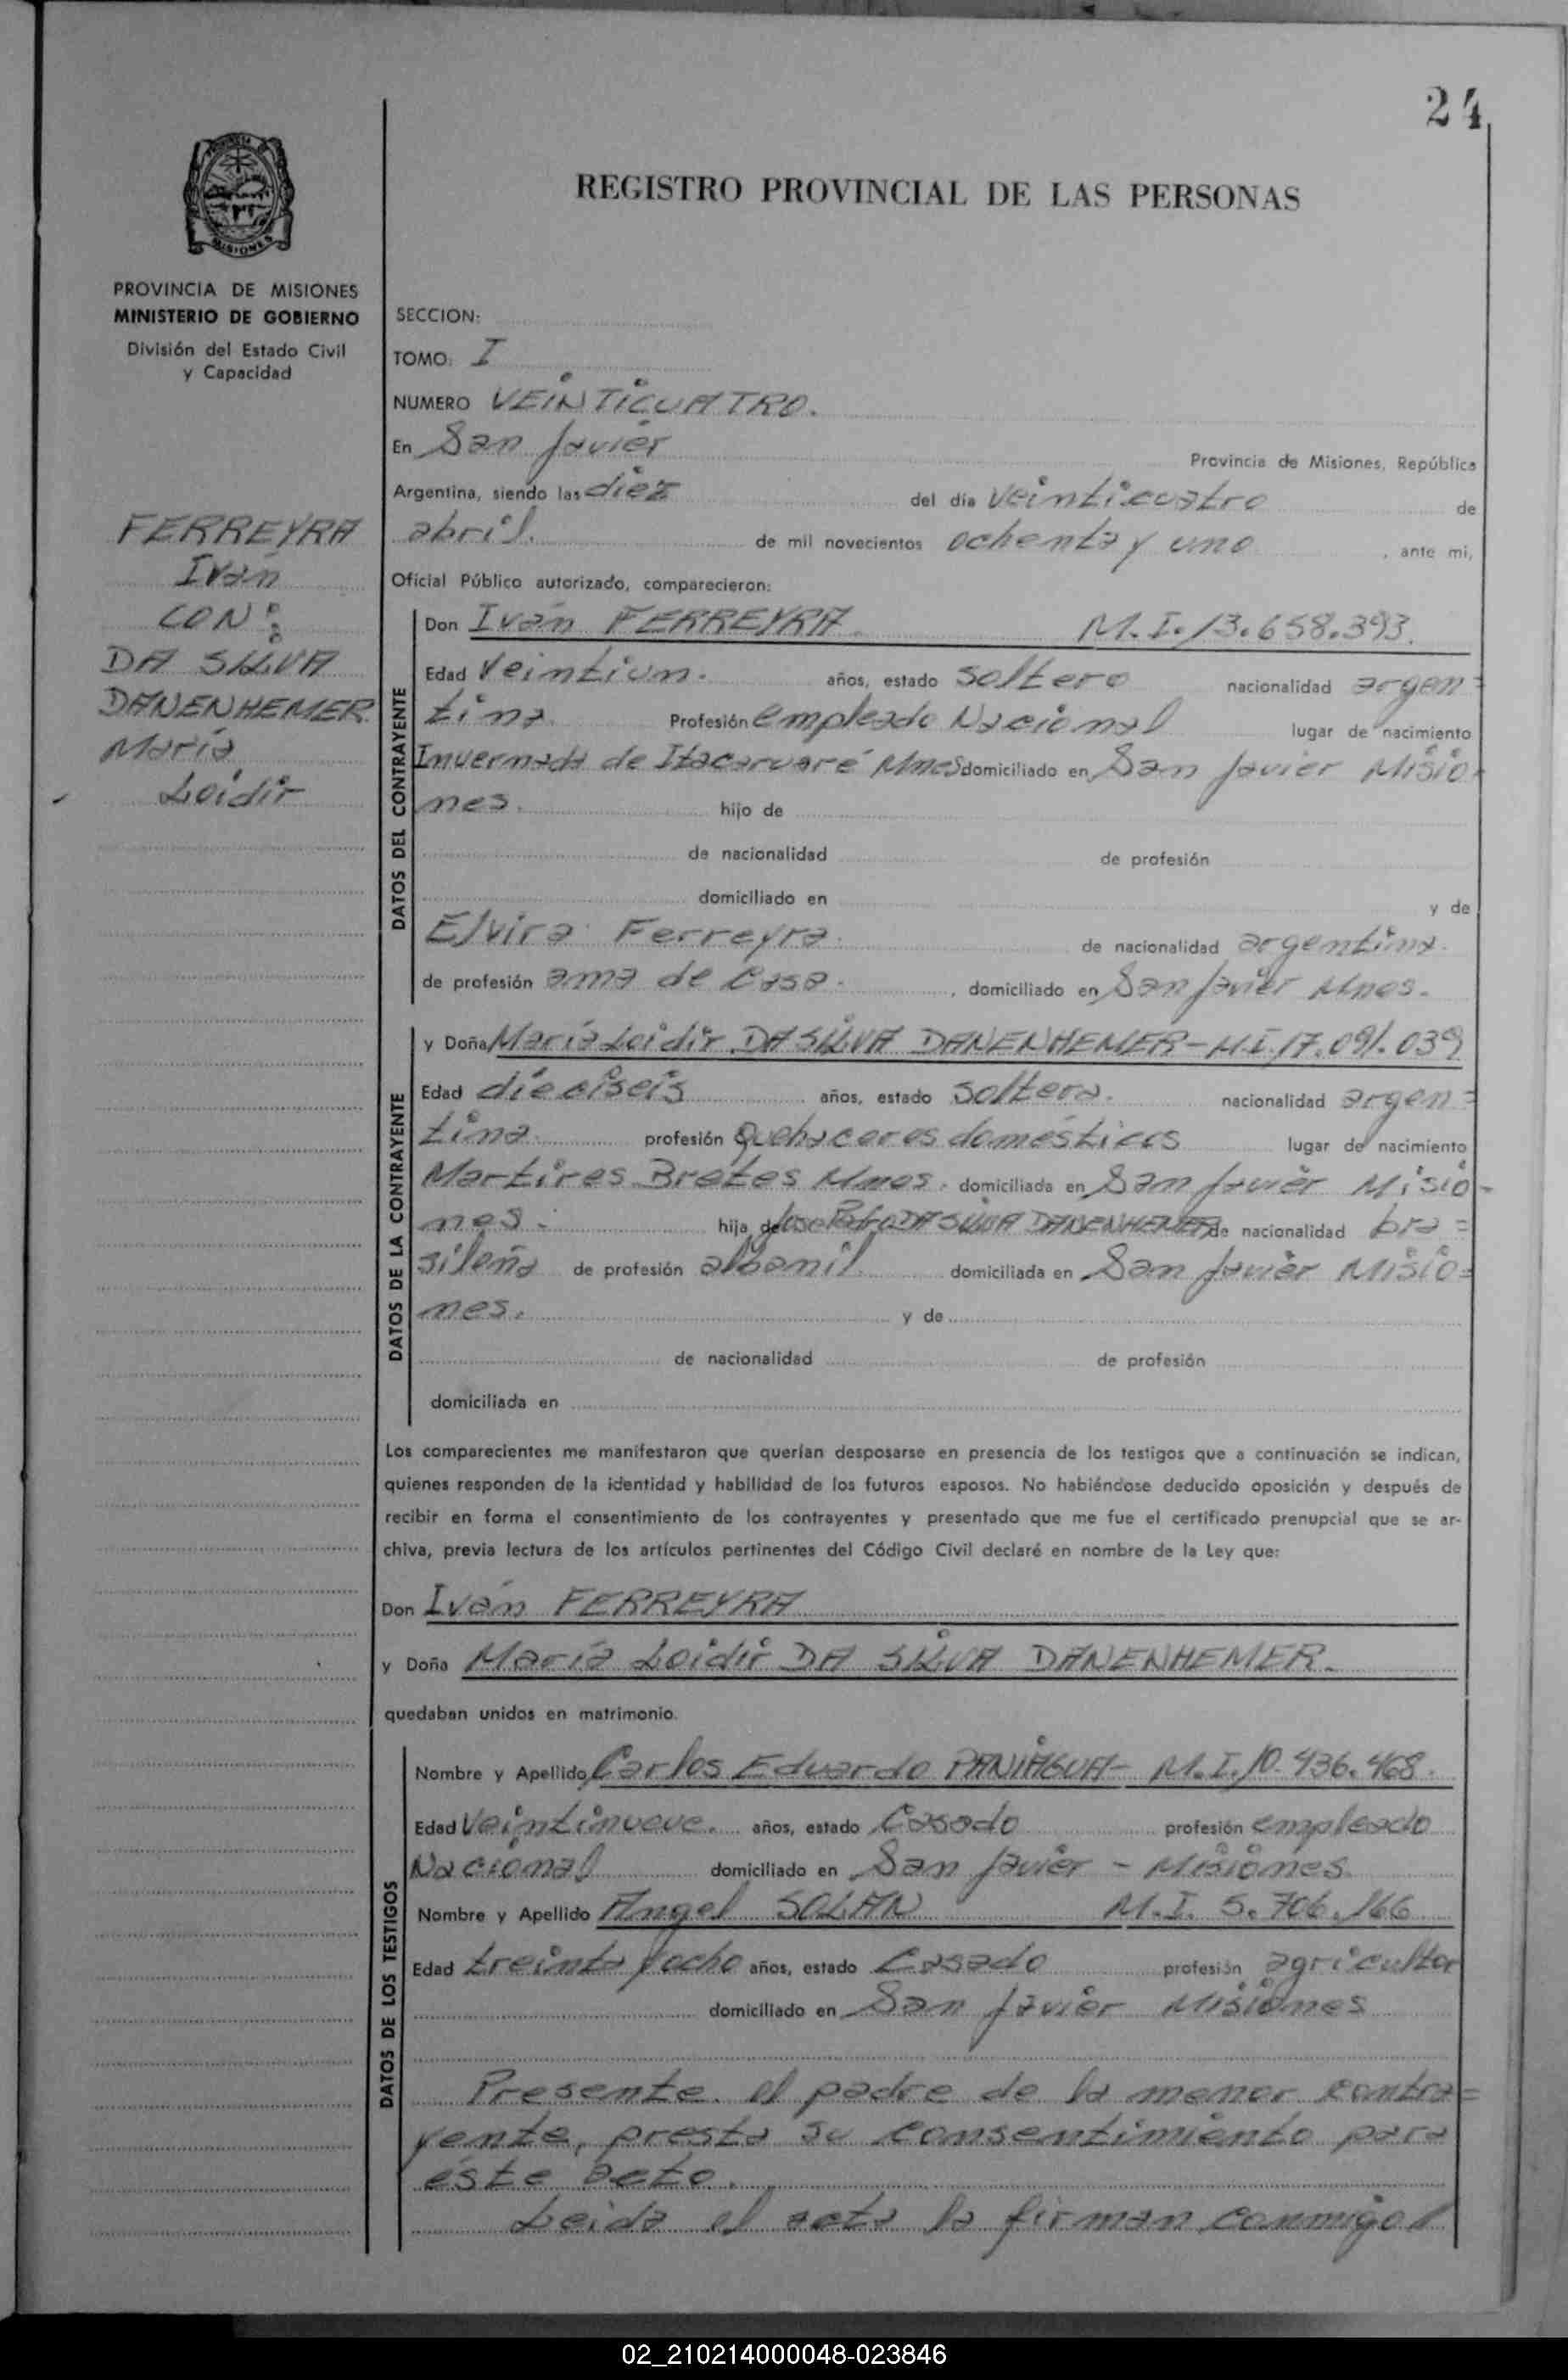 24
REGISTRO PROVINCIAL DE LAS PERSONAS
MISIONES
PROVINCIA DE MISIONES
MINISTERIO DE GOBIERNO
División del Estado Civil
y Capacidad
FERREYRA
Iván
CON:
DA SILVA
DANENHEMER
María
Loidir
SECCION:
TOMO: I
NUMERO VEINTICUATRO.
En San Javier Provincia de Misiones, República
Argentina, siendo las diez del día veinticuatro de
abril. de mil novecientos ochenta y uno , ante mi,
Oficial Público autorizado, comparecieron:
DATOS DEL CONTRAYENTE
Don Iván FERREYRA M.I. 13.658.393.
Edad Veintiun. años, estado soltero nacionalidad argen=
tina. Profesión empleado Nacional lugar de nacimiento
Invernada de Itacaruaré Mnes domiciliado en San Javier Misio-
nes. hijo de
de nacionalidad de profesión
domiciliado en y de
Elvira Ferreyra. de nacionalidad argentina.
de profesión ama de Casa. , domiciliado en San Javier Mnes.
DATOS DE LA CONTRAYENTE
y Doña María Loidir DA SILVA DANENHEMER - M.I. 17.091.039
Edad dieciseis años, estado soltera. nacionalidad argen=
tina. profesión Quehaceres domésticos lugar de nacimiento
Martires Bretes Mnes. domiciliada en San Javier Misio-
nes. hija de Jose Pedro DA SILVA DANENHEMER de nacionalidad bra=
sileña de profesión albañil domiciliada en San Javier Misio=
nes. y de
de nacionalidad de profesión
domiciliada en
Los comparecientes me manifestaron que querían desposarse en presencia de los testigos que a continuación se indican,
quienes responden de la identidad y habilidad de los futuros esposos. No habiéndose deducido oposición y después de
recibir en forma el consentimiento de los contrayentes y presentado que me fue el certificado prenupcial que se ar-
chiva, previa lectura de los artículos pertinentes del Código Civil declaré en nombre de la Ley que:
Don Iván FERREYRA
y Doña María Loidir DA SILVA DANENHEMER.
quedaban unidos en matrimonio.
DATOS DE LOS TESTIGOS
Nombre y Apellido Carlos Eduardo PANIAGUA - M.I. 10.436.468.
Edad Veintinueve. años, estado Casado profesión empleado
Nacional domiciliado en San Javier - Misiones.
Nombre y Apellido Angel SOLAN M.I. 5.706.166
Edad treinta y ocho años, estado Casado profesión agricultor
domiciliado en San Javier Misiones
Presente el padre de la menor contra=
yente, presta su consentimiento para
éste acto.
Leida el acta la firman conmigo
02_210214000048-023846